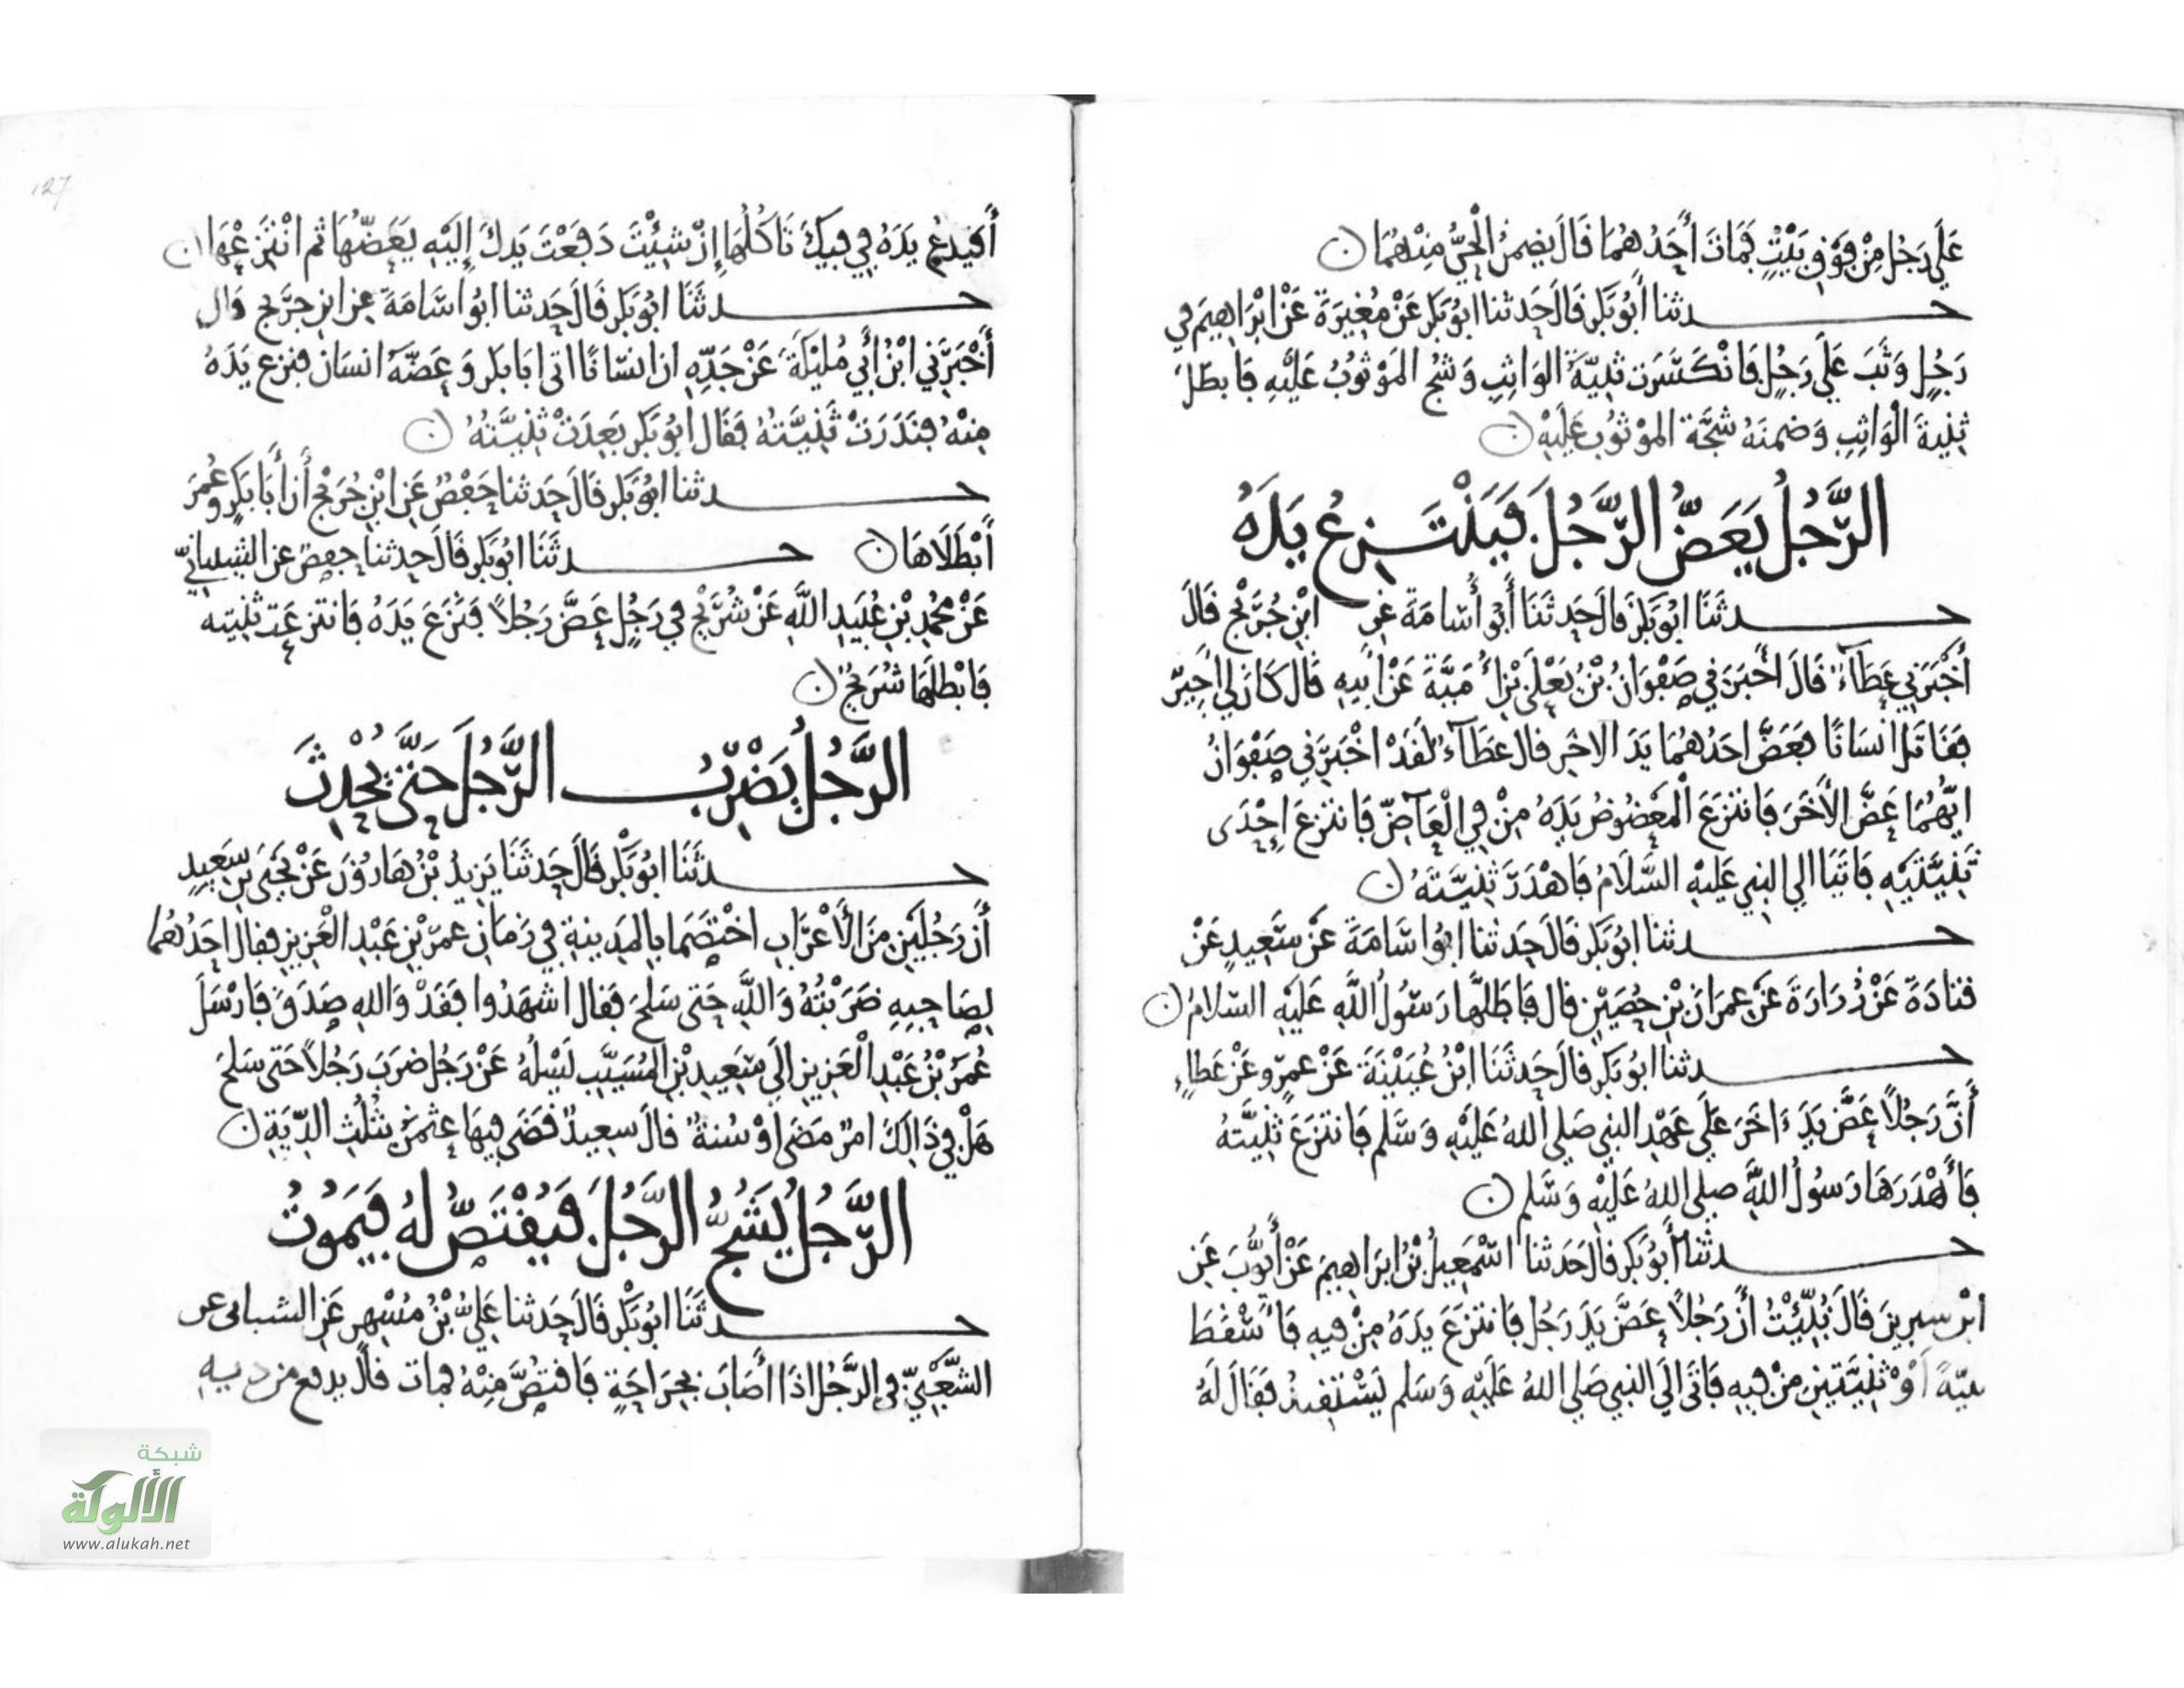 عَلَى رَجُلٍ مِنْ فَوْقِ بَيْتٍ فَمَاتَ أَحَدُهُمَا قَالَ يضمنُ الْحَيُّ مِنْهُمَا ن
حدثنا أَبُو بَكرٍ قَالَ حَدثنا ابُو بَكرٍ عَنْ مُغِيرَةَ عَنْ ابْرَاهِيمَ في
رَجُلٍ وَثَبَ عَلَى رَجُلٍ فَانْكَسَرَت ثَنِيَّةُ الوَاثِبِ وَشُجَّ المَوْثُوبُ عَلَيْهِ فَابطَلَ
ثَنِيةَ الْوَاثِبِ وَضمنَهُ شَجَّة الموْثُوبِ عَلَيْهِ ن
الرَّجُلُ يَعَضُّ الرَّجُلَ فَيَنْتَزِعُ يَدَهُ
حدثَنَا ابُو بَكرٍ قالَ حَدثَنَا أَبُو أُسَامَةَ عَنِ ابْنِ جُرَيْجٍ قَالَ
أَخْبَرَنِي عَطَآءٌ قَالَ أَخْبَرَنِي صَفْوَانُ بْنُ يَعْلَى بْنِ أُمَيَّةَ عَنْ أَبِيهِ قَالَ كَانَ لِي أَجِيرٌ
فَقَاتَلَ انْسَانًا فَعَضَّ احَدُهُمَا يَدَ الاخَرِ قال عَطَآءٌ لَقَدْ اخْبَرَنِي صَفْوَانُ
ايُّهُمَا عَضَّ الأَخَرَ فَانتَزَعَ الْمَعْضُوضُ يَدَهُ مِنْ فِي الْعَاضِّ فَانتَزعَ اِحْدَى
ثَنِيَّتَيْهِ فَاتَيَا الي النبِي عَلَيْهِ السَّلَامُ فَاهْدَرَ ثَنِيَّتَهُ ن
حدثنا ابُو بَكرٍ قَالَ حَدثنا ابُو اسَامَةَ عَنْ سَعِيدٍ عَنْ
قتادَةَ عَنْ زُرَارَةَ عَنْ عِمرَانَ بْنِ حُصَيْنٍ قال فَابطَلَهَا رَسُولُ اللَّهِ عَلَيْهِ السّلامُ ن
حدثنا ابُو بَكرٍ قالَ حَدثَنَا ابْنُ عُيَيْنَةَ عَنْ عمرٍو عَنْ عَطاءٍ
أَنَّ رَجُلاً عَضَّ يَدَ ءَاخَرَ عَلَى عَهْدِ النبِي صَلى اللهُ عَلَيْهِ وَسَلم فَانتَزَعَ ثَنِيَّتهُ
فَأَهْدَرَهَا رَسُولُ اللَّهِ صلى اللهُ عَلَيْهِ وَسَلم ن
حدثنا أَبُو بَكرٍ قالَ حَدثنا اسْمعِيلُ بْنُ ابرَاهِيمَ عَنْ أَيُّوبَ عَنِ
ابْنِ سِيرِينَ قَالَ نُبِّئْتُ أَنَّ رَجُلاً عَضَّ يَدَ رَجُلٍ فَانتَزَعَ يَدَهُ مِنْ فِيهِ فَأَسْقَطَ
ثنيّةً أَوْ ثَنِيَّتَينِ مِنْ فِيهِ فَاتَى الَى النبِي صَلى اللهُ عَلَيْهِ وَسَلم يَسْتَقِيدُ فَقَالَ لَهُ
127
أَفَيَدعُ يَدَهُ فِي فِيكَ تَاكُلُهَا إِنْ شِئْتَ دَفَعْتَ يَدكَ إِلَيْهِ يَعَضُّهَا ثم انْتَزِعْهَا ن
حدثَنَا ابُو بَكرٍ قَالَ حَدثنا ابُو اسَامَةَ عن ابنِ جرَيج قال
أَخْبَرَنِي ابْنُ أَبِي مُلَيْكَةَ عَنْ جَدِّهِ ان انسَانًا اتى ابَا بَكرٍ وَعَضَّهُ انسَان فنزع يَدَهُ
مِنْهُ فنَدَرَتْ ثَنِيَّتُهُ فَقَال ابُو بَكرٍ بَعِدَتْ ثَنِيَّتُهُ ن
حدثنا ابُو بَكرٍ قالَ حَدثنا حَفْصٌ عَنِ ابْنِ جُرَيْجٍ أَنَّ أَبَا بَكرٍ وعُمَرَ
أَبْطَلَاهَا ن حدثَنَا ابُو بَكرٍ قَالَ حدثنا حفصٌ عن الشيبانيّ
عَنْ محُمدِ بْنِ عُبَيدِ اللَّهِ عَنْ شُرَيْحٍ فِي رَجُلٍ عَضَّ رَجُلاً فَنَزَعَ يَدَهُ فَانتزعَت ثنِيته
فَابْطَلَهَا شُرَيْحٌ ن
الرَّجُلُ يَضْرِبُ الرَّجُلَ حَتَّى يُحْدِثَ
حدثَنَا ابُو بَكرٍ قَالَ حَدثَنَا يَزِيدُ بْنُ هَارُونَ عَنْ يَحْيَى بْنِ سَعِيدٍ
أَنَّ رَجُلَيْنِ مِنَ الأَعْرَابِ اخْتَصَمَا بِالمَدِينةِ فِي زَمَانِ عمرَ بْنِ عَبْدِ الْعَزِيزِ فقال احَدُهُمَا
لِصَاحِبِهِ ضَرَبْتُهُ وَاللَّهِ حَتى سَلحَ فَقال اشهَدُوا فَقَدْ وَاللهِ صَدَقَ فَارْسَلَ
عُمَرُ بْنُ عَبْدِ الْعَزِيزِ الَى سَعِيدِ بْنِ المُسَيَّبِ يَسْلُهُ عَنْ رَجُلٍ ضَرَبَ رَجُلاً حَتى سَلحَ
هَلْ فِي ذَالِكَ امرٌ مَضَى اوْ سُنةٌ قالَ سَعِيدٌ قَضَى فِيهَا عثمنُ بثُلُثِ الدِّيَةِ ن
الرَّجُلُ يَشُجُّ الرَّجُلَ فَيُقْتَصُّ لَهُ فَيَمُوتُ
حدثَنَا ابُو بَكرٍ قَالَ حَدثنا عَلِيُّ بْنُ مُسْهِرٍ عَنِ الشيبانى عن
الشَّعْبِيِّ فِي الرَّجُلِ اذَا أَصَابَ بِجِرَاحَةٍ فَاقتُصَّ مِنْهُ فمات قال يدفع من ديته
شبكة
الألوكة
www.alukah.net